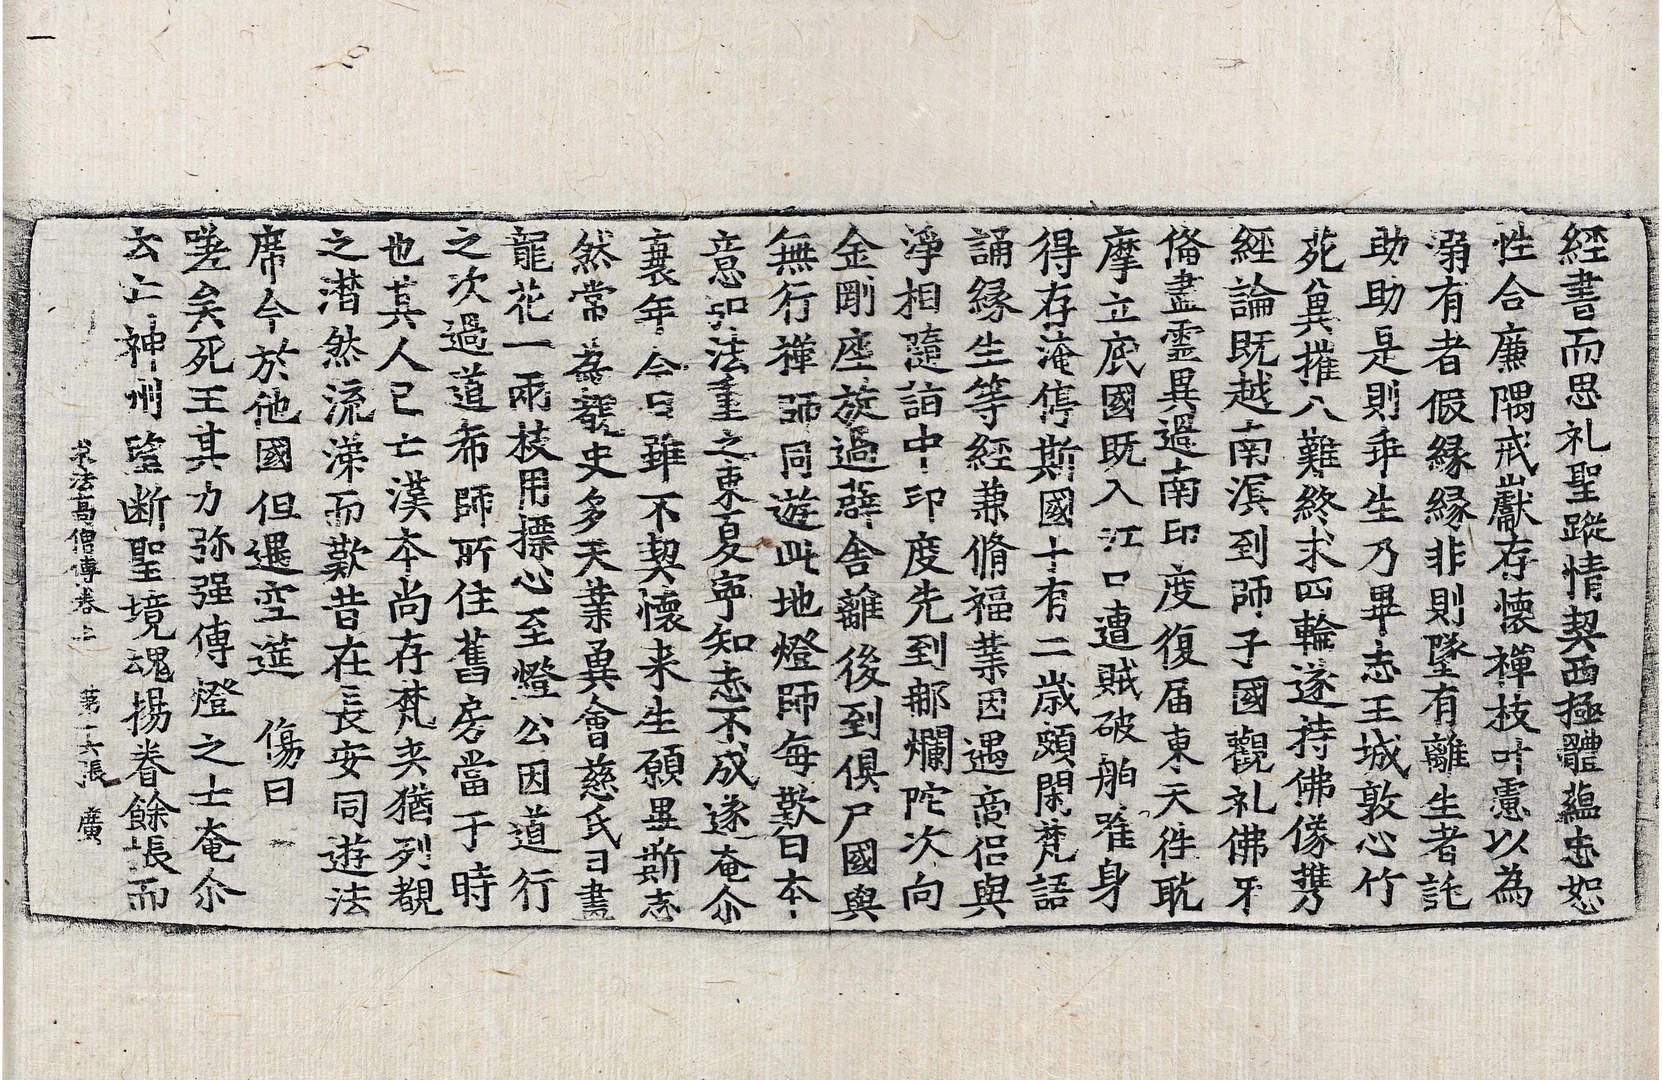 經書而思礼聖蹤情契西極體蘊忠恕
性合廉隅戒巘存懷禪枝叶慮以為
溺有者假緣緣非則墜有離生者託
助助是則乖生乃畢志王城敦心竹
菀兾摧八難終求四輪遂持佛像攜
經論既越南溟到師子國觀礼佛牙
俻盡霊異過南印度復届東天徃耽
摩立底國既入江口遭賊破舶唯身
得存淹停斯國十有二歲頗閑梵語
誦緣生等經兼脩福業因遇商侶與
淨相隨詣中印度先到郍爛陀次向
金剛座旋過薜舍離後到俱尸國與
無行禪師同遊此地燈師每歎曰本
意弘法重之東夏寧知志不成遂奄尒
衰年今日雖不契懷来生願畢斯志
然常為覩史多天業兾會慈氏日畫
龍花一兩枝用摽心至燈公因道行
之次過道希師所住舊房當于時
也其人已亡漢本尚存梵夾猶列覩
之潸然流涕而歎昔在長安同遊法
席今於他國但遇空筵　傷曰
嗟矣死王其力弥强傳燈之士奄尒
云亡神州望断聖境魂揚眷餘悵而
求法高僧傳卷上　第十六張　廣